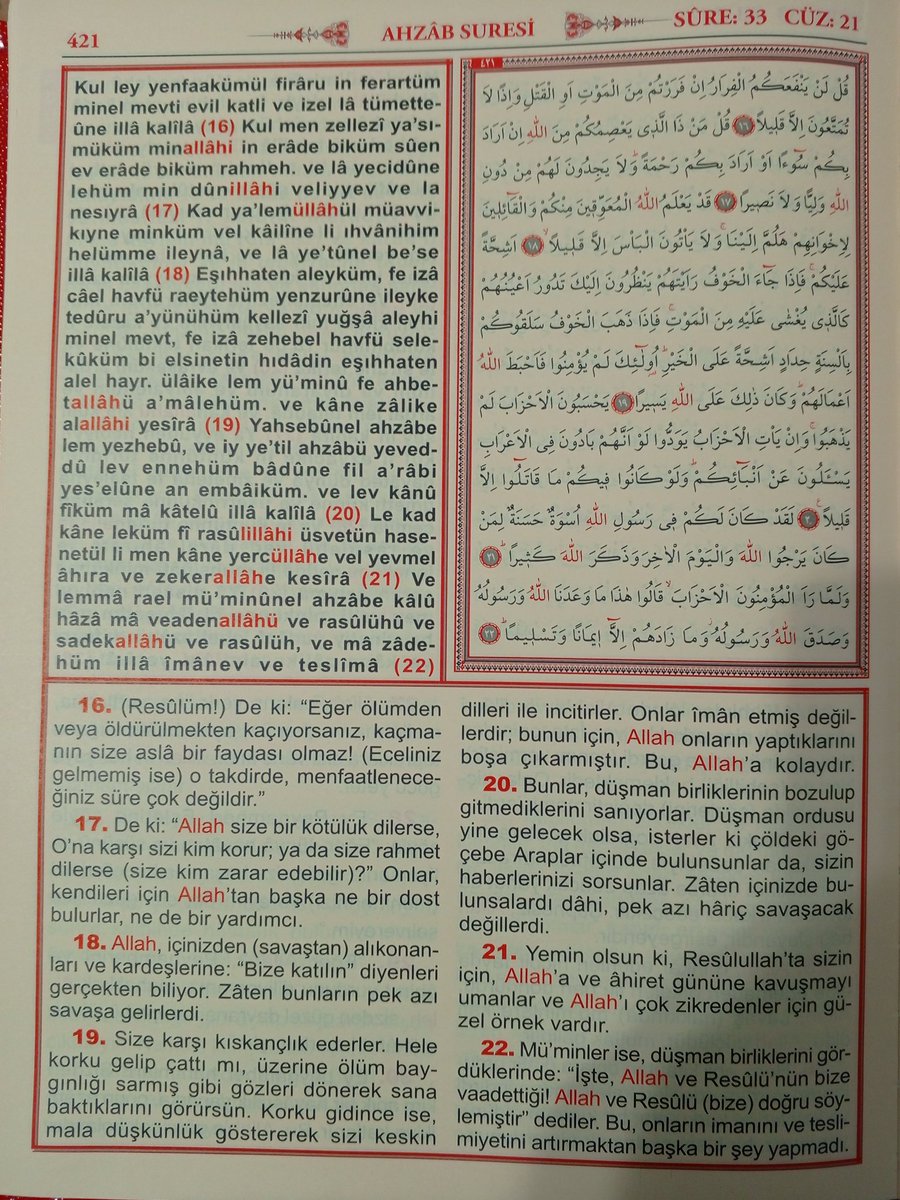 421
AHZÂB SURESİ
SÛRE: 33 CÜZ: 21
Kul ley yenfaakümül firâru in ferartüm
minel mevti evil katli ve izel lâ tümette-
ûne illâ kalîlâ (16) Kul men zellezî ya’sı-
müküm minallâhi in erâde biküm sûen
ev erâde biküm rahmeh. ve lâ yecidûne
lehüm min dûnillâhi veliyyev ve la
nesıyrâ (17) Kad ya’lemüllâhül müavvi-
kıyne minküm vel kâilîne li ıhvânihim
helümme ileynâ, ve lâ ye’tûnel be’se
illâ kalîlâ (18) Eşıhhaten aleyküm, fe izâ
câel havfü raeytehüm yenzurûne ileyke
tedûru a’yünühüm kellezî yuğşâ aleyhi
minel mevt, fe izâ zehebel havfü sele-
kûküm bi elsinetin hıdâdin eşıhhaten
alel hayr. ülâike lem yü’minû fe ahbe-
tallâhü a’mâlehüm. ve kâne zâlike
alallâhi yesîrâ (19) Yahsebûnel ahzâbe
lem yezhebû, ve iy ye’til ahzâbü yeved-
dû lev ennehüm bâdûne fil a’râbi
yes’elûne an embâiküm. ve lev kânû
fîküm mâ kâtelû illâ kalîlâ (20) Le kad
kâne leküm fî rasûlillâhi üsvetün hase-
netül li men kâne yercüllâhe vel yevmel
âhıra ve zekerallâhe kesîrâ (21) Ve
lemmâ rael mü’minûnel ahzâbe kâlû
hâzâ mâ veadenallâhü ve rasûlühû ve
sadekallâhü ve rasûlüh, ve mâ zâde-
hüm illâ îmânev ve teslîmâ (22)
٤٢١
قُلْ لَنْ يَنْفَعَكُمُ الْفِرَارُ اِنْ فَرَرْتُمْ مِنَ الْمَوْتِ اَوِ الْقَتْلِ وَاِذًا لَا
تُمَتَّعُونَ اِلَّا قَلِيلًا ﴿١٦﴾ قُلْ مَنْ ذَا الَّذٖى يَعْصِمُكُمْ مِنَ اللّٰهِ اِنْ اَرَادَ
بِكُمْ سُٓوءًا اَوْ اَرَادَ بِكُمْ رَحْمَةً وَلَا يَجِدُونَ لَهُمْ مِنْ دُونِ
اللّٰهِ وَلِيًّا وَلَا نَصٖيرًا ﴿١٧﴾ قَدْ يَعْلَمُ اللّٰهُ الْمُعَوِّقٖينَ مِنْكُمْ وَالْقَٓائِلٖينَ
لِاِخْوَانِهِمْ هَلُمَّ اِلَيْنَا وَلَا يَأْتُونَ الْبَأْسَ اِلَّا قَلٖيلًا ﴿١٨﴾ اَشِحَّةً
عَلَيْكُمْ فَاِذَا جَٓاءَ الْخَوْفُ رَاَيْتَهُمْ يَنْظُرُونَ اِلَيْكَ تَدُورُ اَعْيُنُهُمْ
كَالَّذٖى يُغْشٰى عَلَيْهِ مِنَ الْمَوْتِ فَاِذَا ذَهَبَ الْخَوْفُ سَلَقُوكُمْ
بِاَلْسِنَةٍ حِدَادٍ اَشِحَّةً عَلَى الْخَيْرِ اُولٰٓئِكَ لَمْ يُؤْمِنُوا فَاَحْبَطَ اللّٰهُ
اَعْمَالَهُمْ وَكَانَ ذٰلِكَ عَلَى اللّٰهِ يَسٖيرًا ﴿١٩﴾ يَحْسَبُونَ الْاَحْزَابَ لَمْ
يَذْهَبُوا وَاِنْ يَأْتِ الْاَحْزَابُ يَوَدُّوا لَوْ اَنَّهُمْ بَادُونَ فِى الْاَعْرَابِ
يَسْـَٔلُونَ عَنْ اَنْبَٓائِكُمْ وَلَوْ كَانُوا فٖيكُمْ مَا قَاتَلُٓوا اِلَّا
قَلٖيلًا ﴿٢٠﴾ لَقَدْ كَانَ لَكُمْ فٖى رَسُولِ اللّٰهِ اُسْوَةٌ حَسَنَةٌ لِمَنْ
كَانَ يَرْجُوا اللّٰهَ وَالْيَوْمَ الْاٰخِرَ وَذَكَرَ اللّٰهَ كَثٖيرًا ﴿٢١﴾
وَلَمَّا رَاَ الْمُؤْمِنُونَ الْاَحْزَابَ قَالُوا هٰذَا مَا وَعَدَنَا اللّٰهُ وَرَسُولُهُ
وَصَدَقَ اللّٰهُ وَرَسُولُهُ وَمَا زَادَهُمْ اِلَّٓا اٖيمَانًا وَتَسْلٖيمًا ﴿٢٢﴾
16. (Resûlüm!) De ki: “Eğer ölümden
veya öldürülmekten kaçıyorsanız, kaçma-
nın size aslâ bir faydası olmaz! (Eceliniz
gelmemiş ise) o takdirde, menfaatlenece-
ğiniz süre çok değildir.”
17. De ki: “Allah size bir kötülük dilerse,
O’na karşı sizi kim korur; ya da size rahmet
dilerse (size kim zarar edebilir)?” Onlar,
kendileri için Allah’tan başka ne bir dost
bulurlar, ne de bir yardımcı.
18. Allah, içinizden (savaştan) alıkonan-
ları ve kardeşlerine: “Bize katılın” diyenleri
gerçekten biliyor. Zâten bunların pek azı
savaşa gelirlerdi.
19. Size karşı kıskançlık ederler. Hele
korku gelip çattı mı, üzerine ölüm bay-
gınlığı sarmış gibi gözleri dönerek sana
baktıklarını görürsün. Korku gidince ise,
mala düşkünlük göstererek sizi keskin
dilleri ile incitirler. Onlar îmân etmiş değil-
lerdir; bunun için, Allah onların yaptıklarını
boşa çıkarmıştır. Bu, Allah’a kolaydır.
20. Bunlar, düşman birliklerinin bozulup
gitmediklerini sanıyorlar. Düşman ordusu
yine gelecek olsa, isterler ki çöldeki gö-
çebe Araplar içinde bulunsunlar da, sizin
haberlerinizi sorsunlar. Zâten içinizde bu-
lunsalardı dâhi, pek azı hâriç savaşacak
değillerdi.
21. Yemin olsun ki, Resûlullah’ta sizin
için, Allah’a ve âhiret gününe kavuşmayı
umanlar ve Allah’ı çok zikredenler için gü-
zel örnek vardır.
22. Mü’minler ise, düşman birliklerini gör-
düklerinde: “İşte, Allah ve Resûlü’nün bize
vaadettiği! Allah ve Resûlü (bize) doğru söy-
lemiştir” dediler. Bu, onların imanını ve tesli-
miyetini artırmaktan başka bir şey yapmadı.